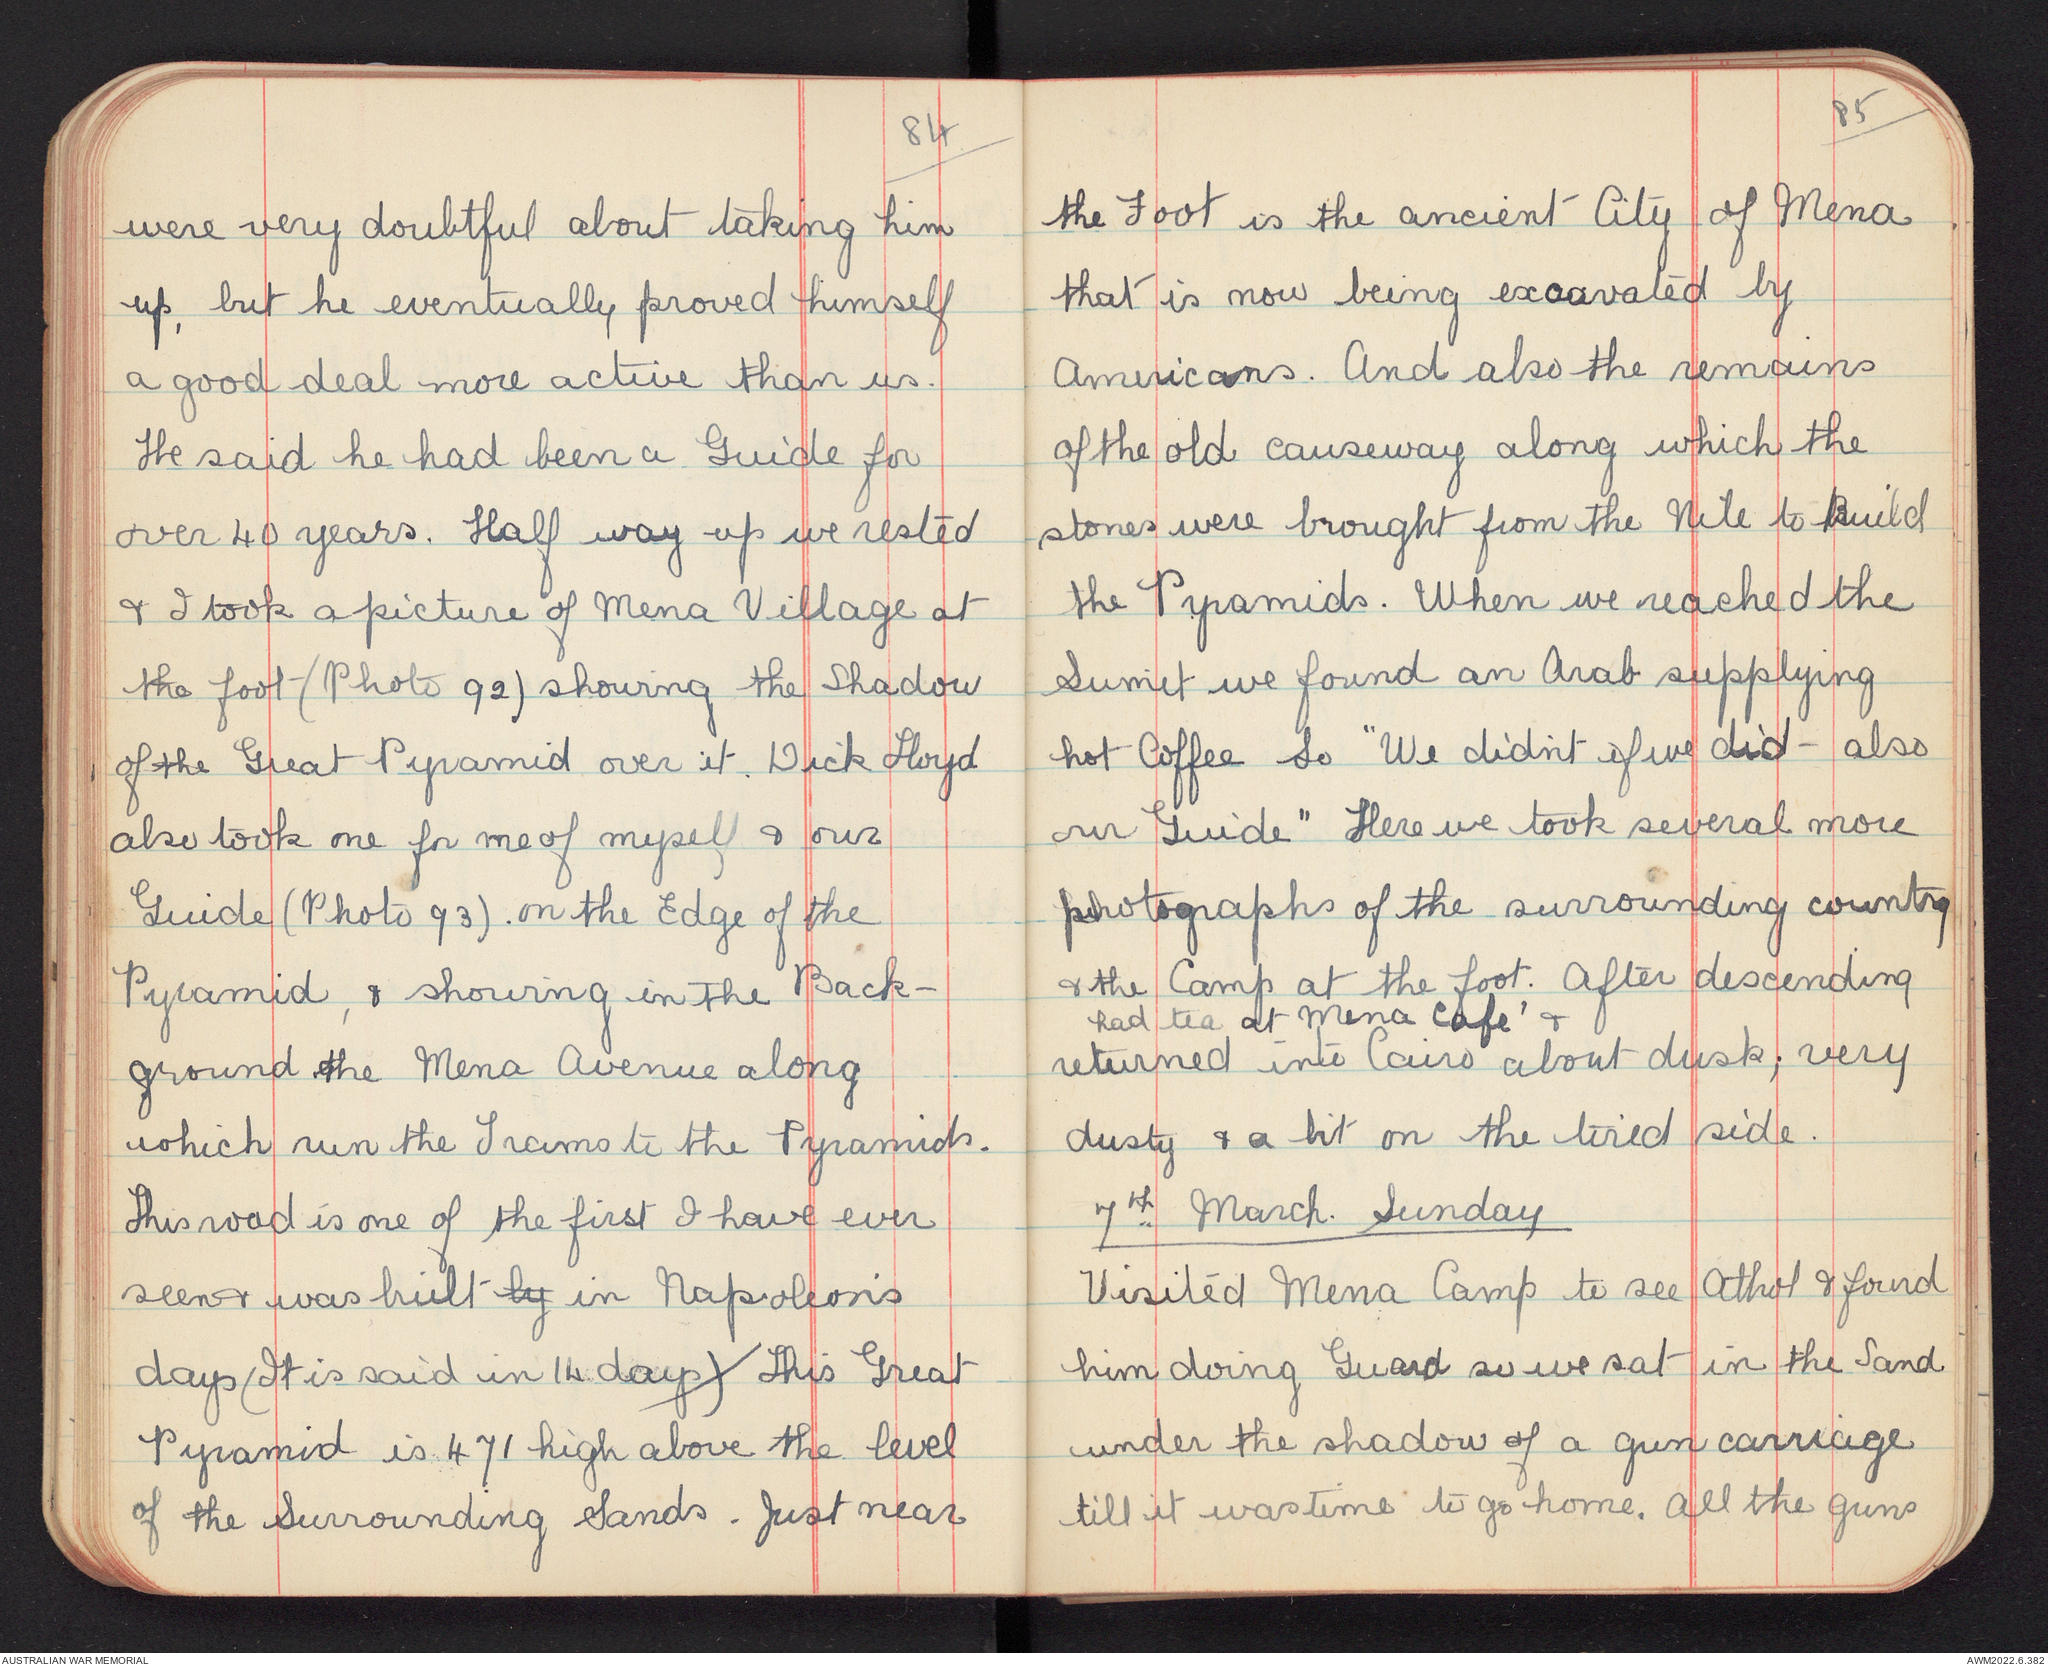 84
were very doubtful about taking him
up, but he eventually proved himself
a good deal more active than us.
He said he had been a Guide for
over 40 years. Half way up we rested
& I took a picture of Mena Village at
the foot (Photo 92) showing the Shadow
of the Great Pyramid over it. Dick Lloyd
also took one for me of myself & our
Guide (Photo 93). on the Edge of the
Pyramid, & showing in the Back-
ground the Mena Avenue along
which run the Trams to the Pyramids.
This road is one of the first I have ever
seen & was built by in Napoleon's
days (It is said in 14 days) This Great
Pyramid is 471 high above the level
of the Surrounding Sands. Just near
85
the Foot is the ancient City of Mena
that is now being excavated by
Americans. And also the remains
of the old causeway along which the
stones were brought from the Nile to Build
the Pyramids. When we reached the
Sumit we found an Arab supplying
hot Coffee So "We didn't if we did - also
our Guide" Here we took several more
photographs of the surrounding country
& the Camp at the foot. After descending
had tea at Mena Cafe' &
returned into Cairo about dusk; very
dusty & a bit on the tired side.
7th March. Sunday
Visited Mena Camp to see Athol & found
him doing Guard so we sat in the Sand
under the shadow of a gun carriage
till it was time to go home. All the guns
AUSTRALIAN WAR MEMORIAL
AWM2022.6.382